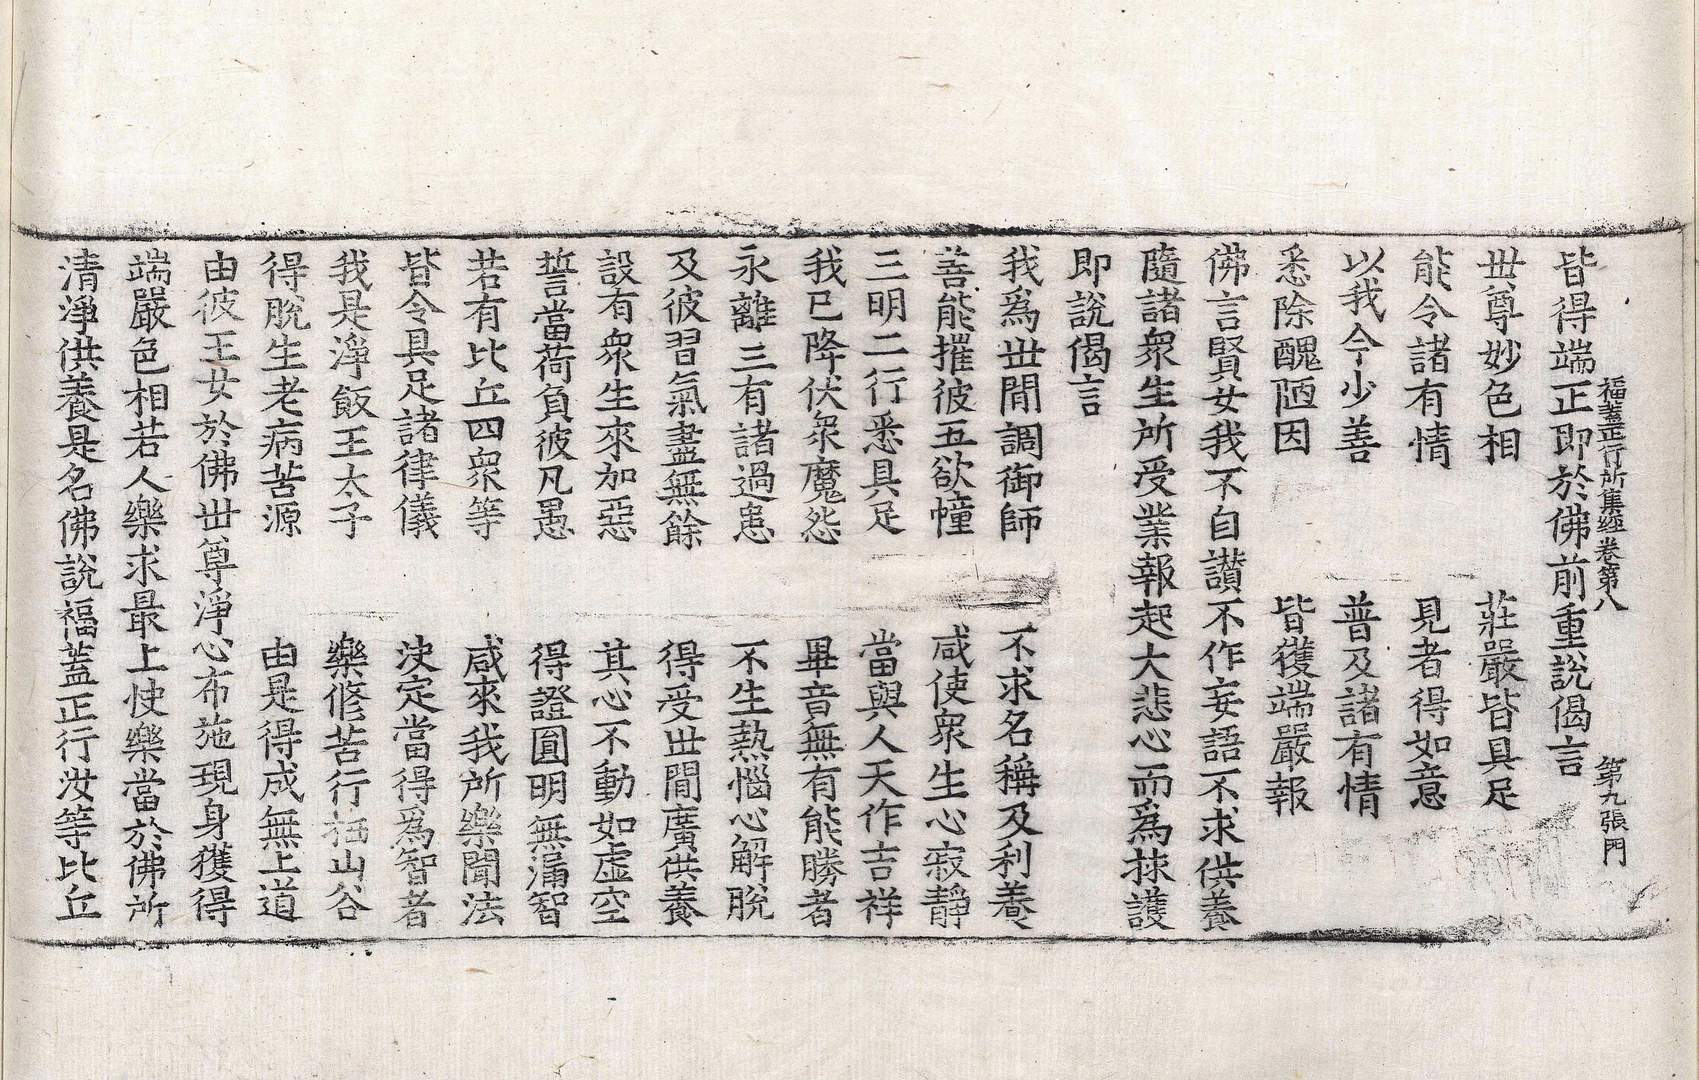 福蓋正行所集經卷第八 第九張 門
皆得端正即於佛前重說偈言
世尊妙色相 莊嚴皆具足
能令諸有情 見者得如意
以我今少善 普及諸有情
悉除醜陋因 皆獲端嚴報
佛言賢女我不自讃不作妄語不求供養
隨諸衆生所受業報起大悲心而爲捄護
即說偈言
我爲世閒調御師 不求名稱及利養
善能摧彼五欲幢 咸使衆生心寂靜
三明二行悉具足 當與人天作吉祥
我已降伏衆魔怨 畢竟無有能勝者
永離三有諸過患 不生熱惱心解脫
及彼習氣盡無餘 得受世閒廣供養
設有衆生來加惡 其心不動如虛空
誓當荷負彼凡愚 得證圓明無漏智
若有比丘四衆等 咸來我所樂聞法
皆令具足諸律儀 决定當得爲智者
我是淨飯王太子 樂修苦行栖山谷
得脫生老病苦源 由是得成無上道
由彼王女於佛世尊淨心布施現身獲得
端嚴色相若人樂求最上快樂當於佛所
清淨供養是名佛說福蓋正行汝等比丘